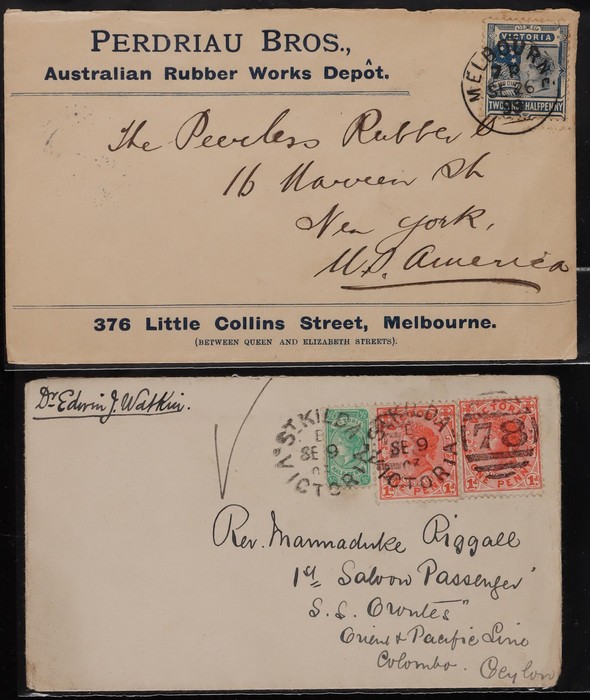 PERDRIAU BROS.,
Australian Rubber Works Depôt.
VICTORIA
MELBOURNE
26
TWO AND HALFPENNY
The Peerless Rubber Co
16 Warren St
New York,
U.S. America
376 Little Collins Street, Melbourne.
(BETWEEN QUEEN AND ELIZABETH STREETS).
Dr Edwin J. Watkin.
ST. KILDA
SE 9
VICTORIA
ST. KILDA
SE 9
VICTORIA
78
Rev. Marmaduke Riggall
1st Saloon Passenger
S.S. Orontes"
Orient & Pacific Line
Colombo. Ceylon